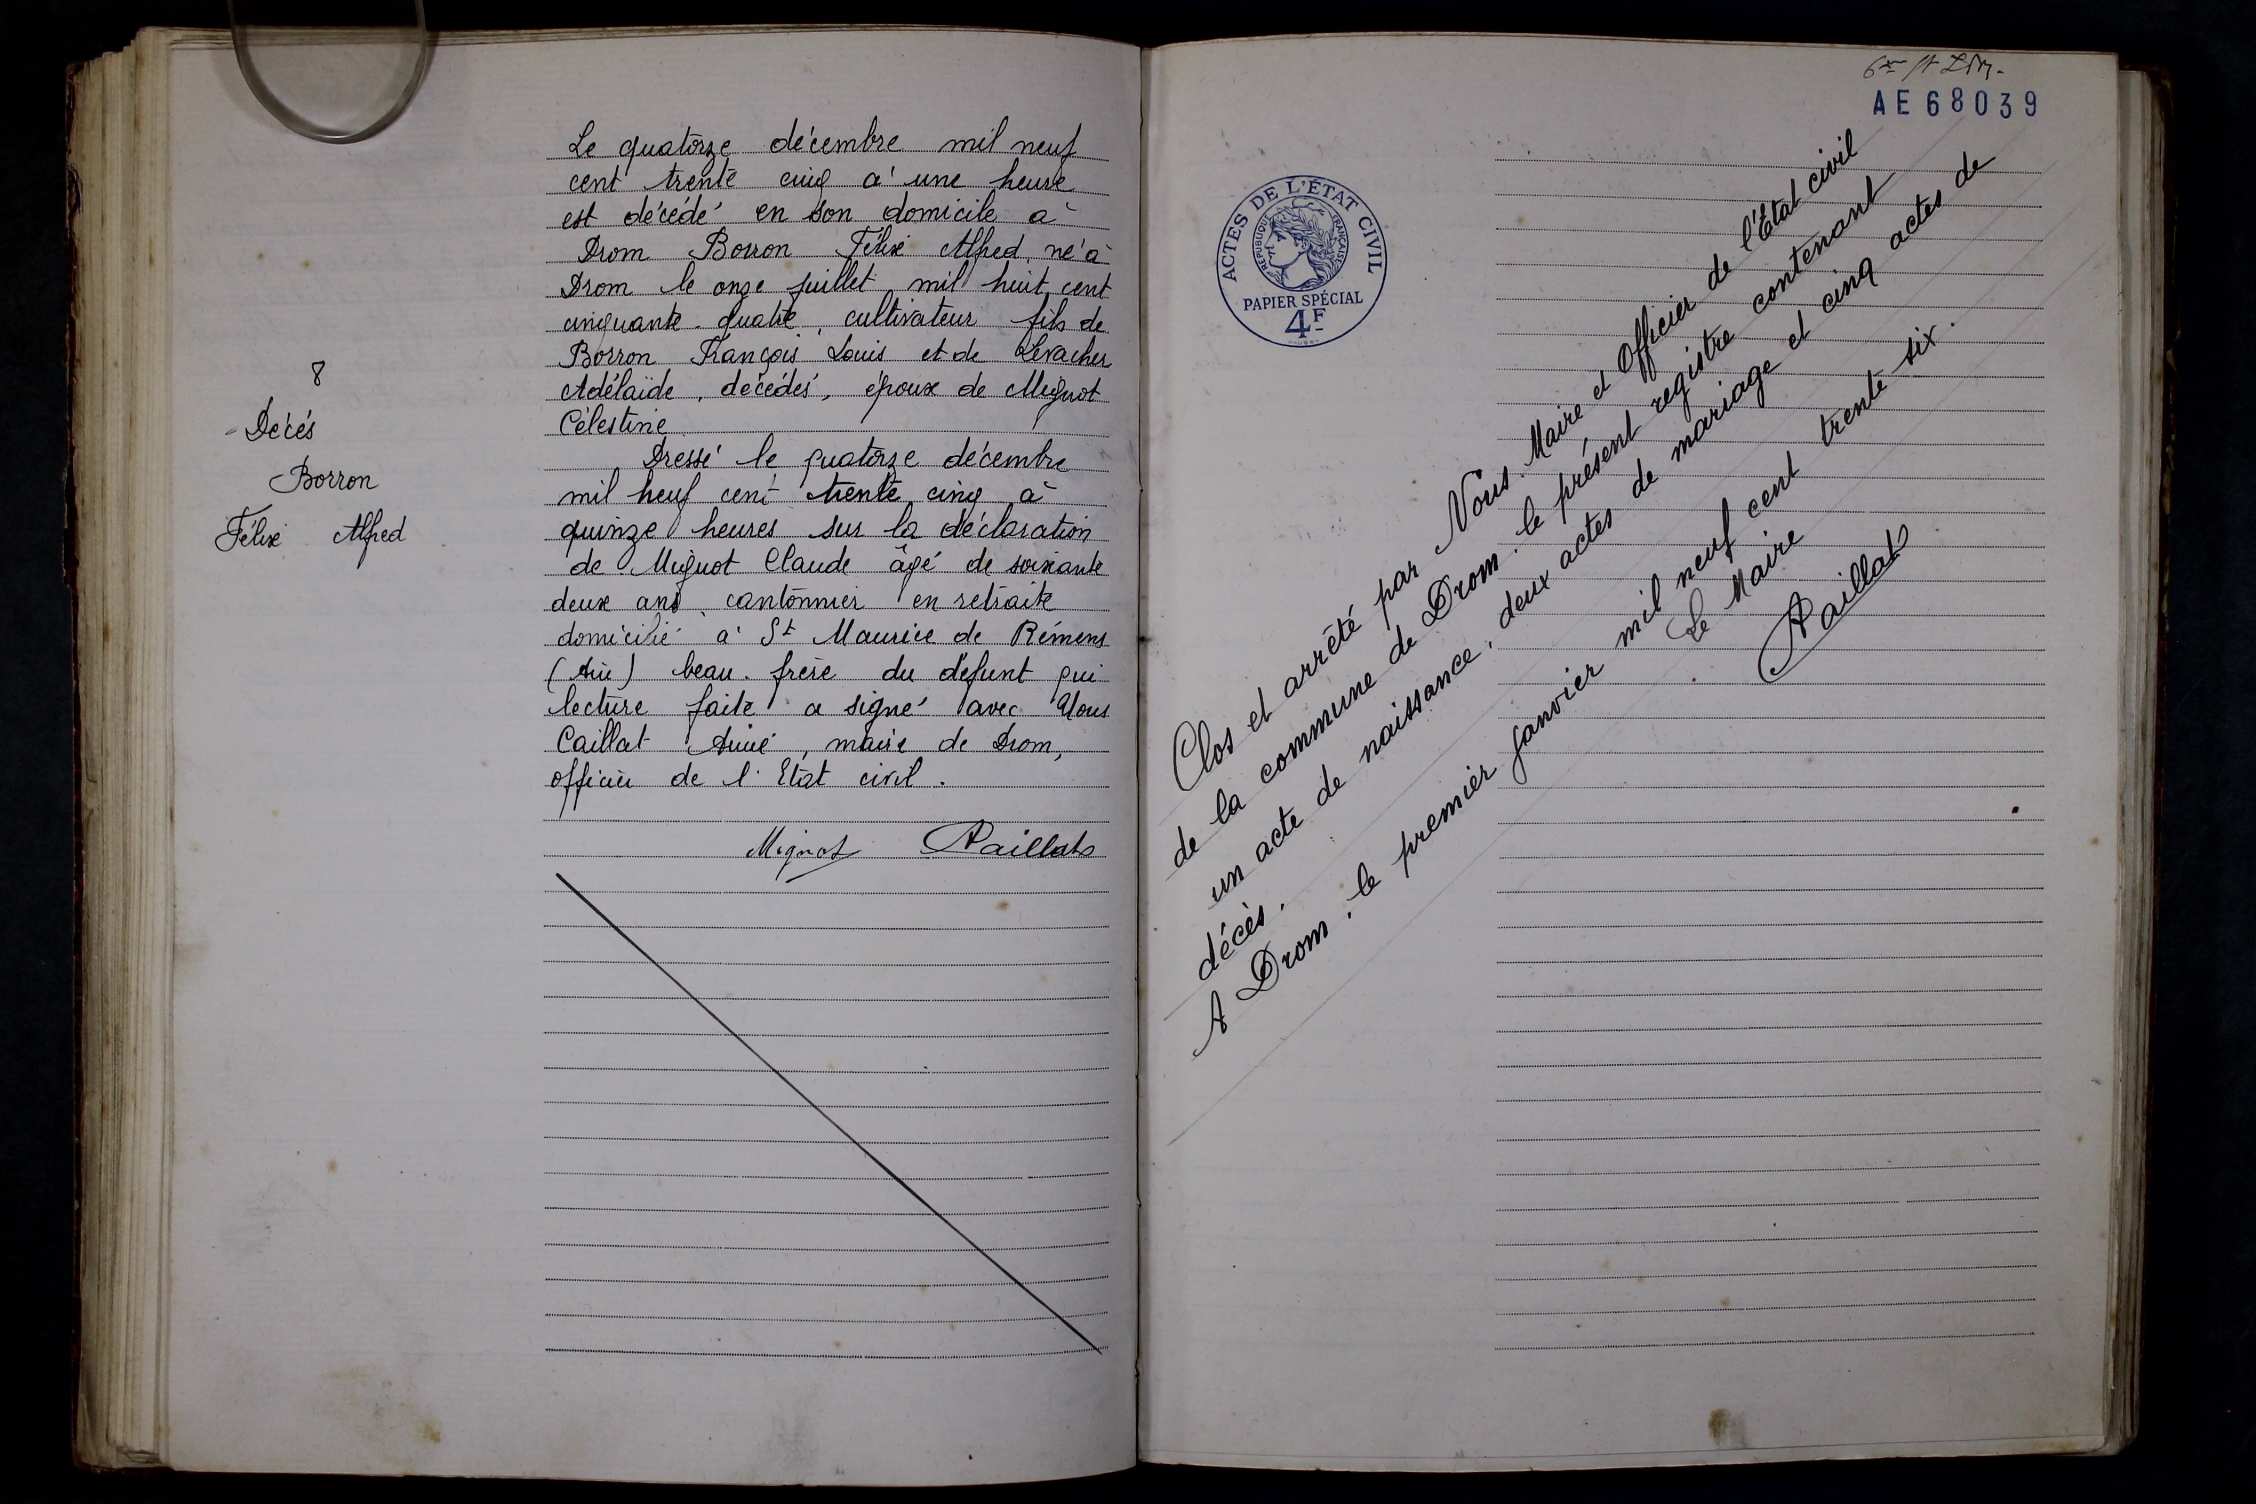 8
Décés
Borron
Félix Alfred
Le quatorze décembre mil neuf
cent trente cinq à une heure
est décédé en son domicile à
Drom Borron Félix Alfred, né à
Drom le onze juillet mil huit cent
cinquante-quatre, cultivateur fils de
Borron François Louis et de Levacher
Adélaïde, décédés, époux de Mignot
Célestine
Dressé le quatorze décembre
mil neuf cent trente cinq à
quinze heures sur la déclaration
de Mignot Claude âgé de soixante
deux ans, cantonnier en retraite
domicilié à St Maurice de Rémens
(Ain) beau-frère du défunt qui
lecture faite a signé avec Nous
Caillat Aimé, maire de Drom,
officier de l'Etat civil.
Mignot ACaillat
AE68039
ACTES DE L'ÉTAT CIVIL
RÉPUBLIQUE FRANÇAISE
PAPIER SPÉCIAL
4F
Clos et arrêté par Nous Maire et Officier de l'Etat civil
de la commune de Drom. le présent registre contenant
un acte de naissance, deux actes de mariage et cinq actes de
décès.
A Drom, le premier janvier mil neuf cent trente six.
Le Maire
ACaillat